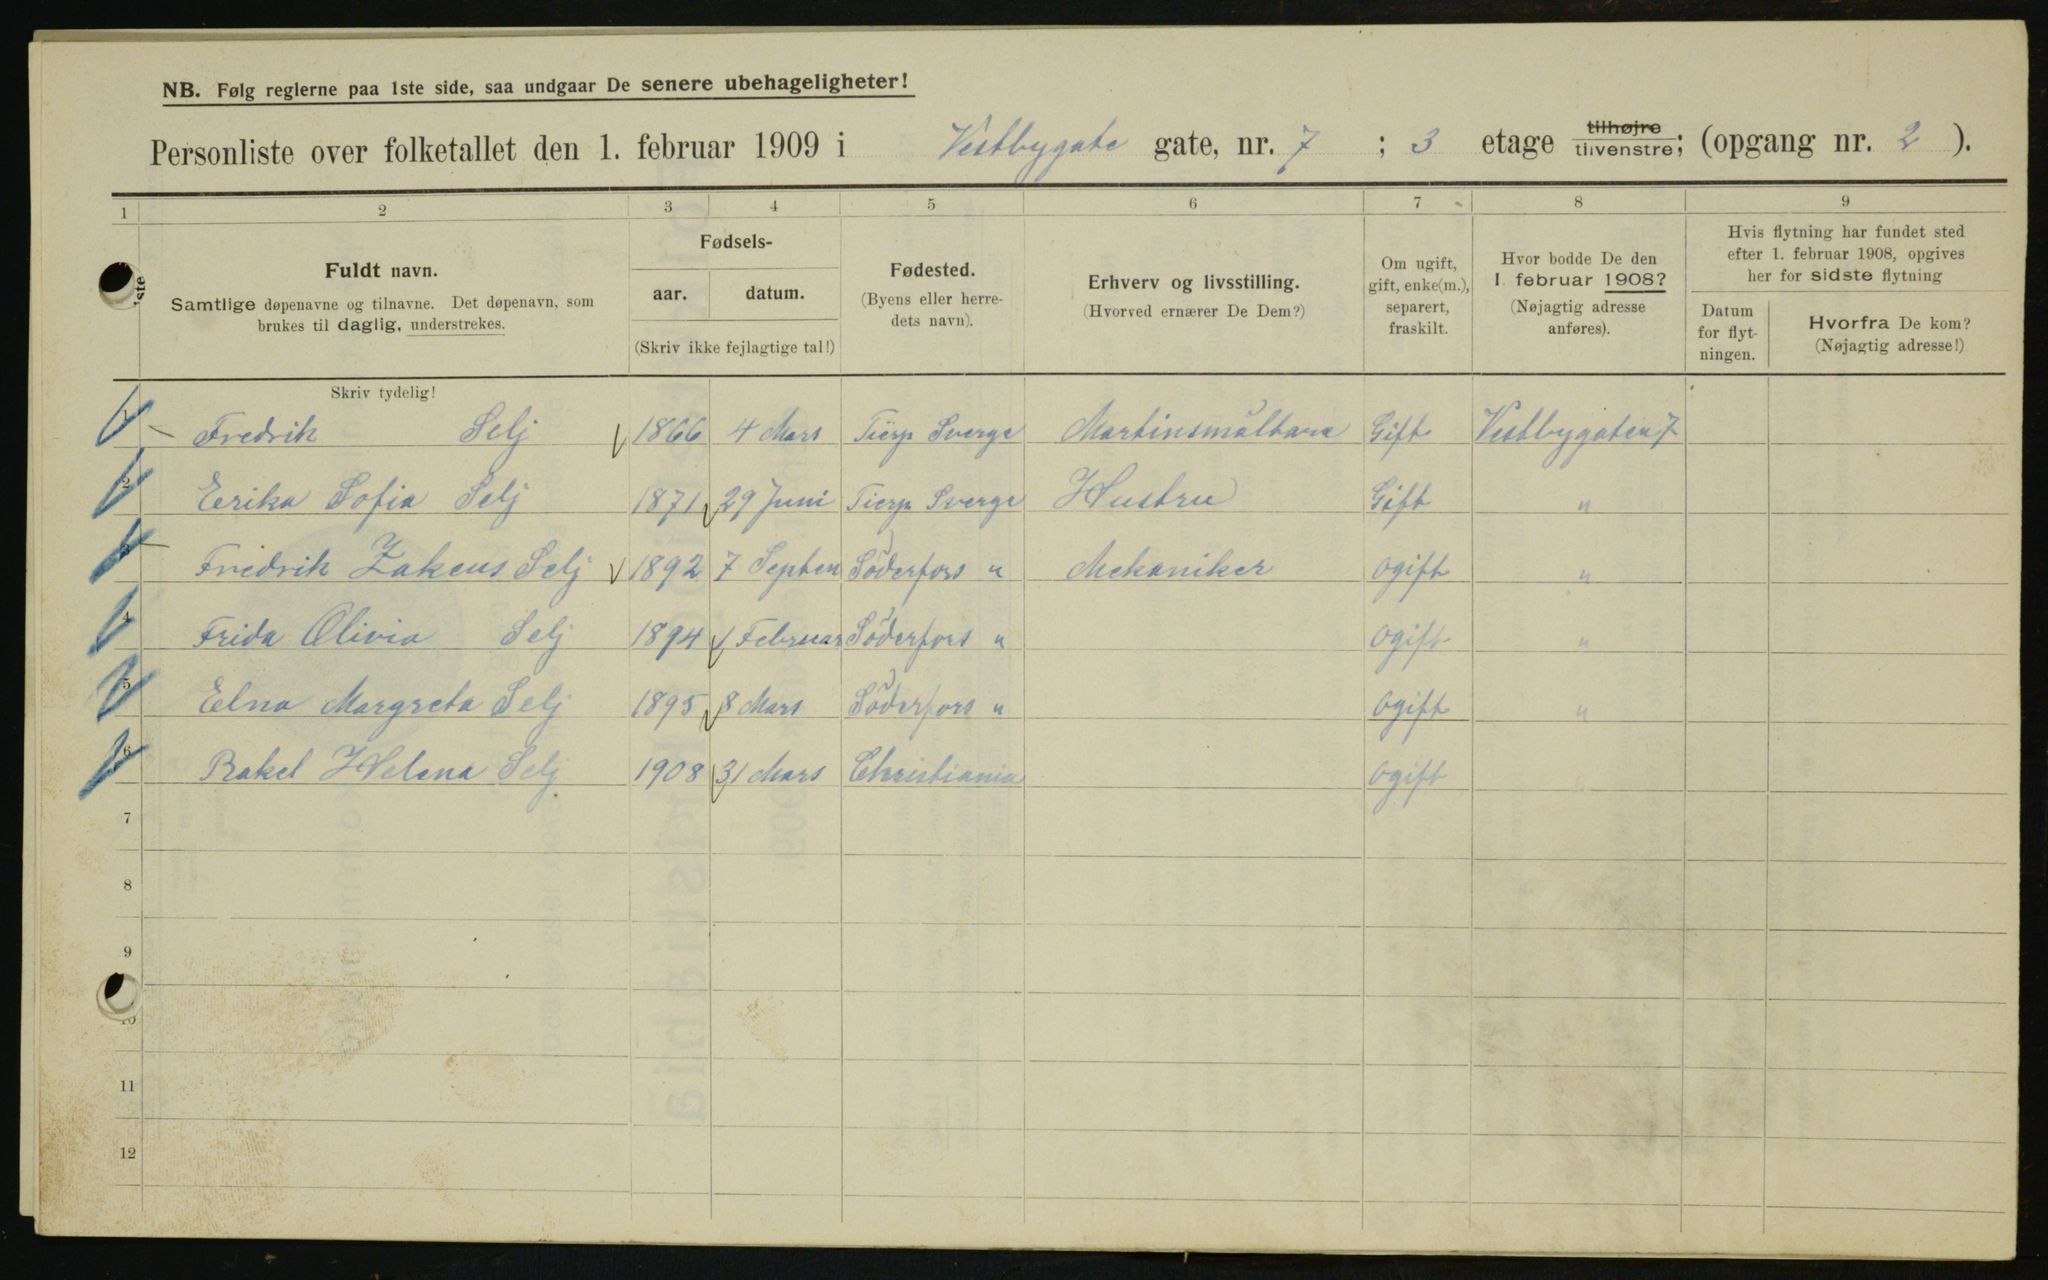 NB. Følg reglerne paa 1ste side, saa undgaar De senere ubehageligheter!
Personliste over folketallet den 1. februar 1909 i Vestbygate gate, nr. 7 ; 3 etage tilhøjre tilvenstre; (opgang nr. 2 ).
1 2 3 4 5 6 7 8 9
Fuldt navn.
Samtlige døpenavne og tilnavne. Det døpenavn, som
brukes til daglig, understrekes.
Fødsels-
aar. datum.
(Skriv ikke fejlagtige tal!)
Fødested.
(Byens eller herre-
dets navn).
Erhverv og livsstilling.
(Hvorved ernærer De Dem?)
Om ugift,
gift, enke(m.),
separert,
fraskilt.
Hvor bodde De den
1 februar 1908?
(Nøjagtig adresse
anføres).
Hvis flytning har fundet sted
efter 1. februar 1908, opgives
her for sidste flytning
Datum
for flyt-
ningen.
Hvorfra De kom?
(Nøjagtig adresse!)
Skriv tydelig!
1 Fredrik Selj 1866 4 Mars Tierp Sverge Martinsmältare Gift Vestbygaten 7
2 Erika Sofia Selj 1871 29 Juni Tierp Sverge Hustru Gift "
3 Fredrik Zakeus Selj 1892 7 Septem Söderfors " Mekaniker Ogift "
4 Frida Olivia Selj 1894 1 Februar Söderfors " Ogift "
5 Elna Margreta Selj 1895 8 Mars Söderfors " Ogift "
6 Rakel Helena Selj 1908 31 Mars Christiania Ogift "
7
8
9
10
11
12